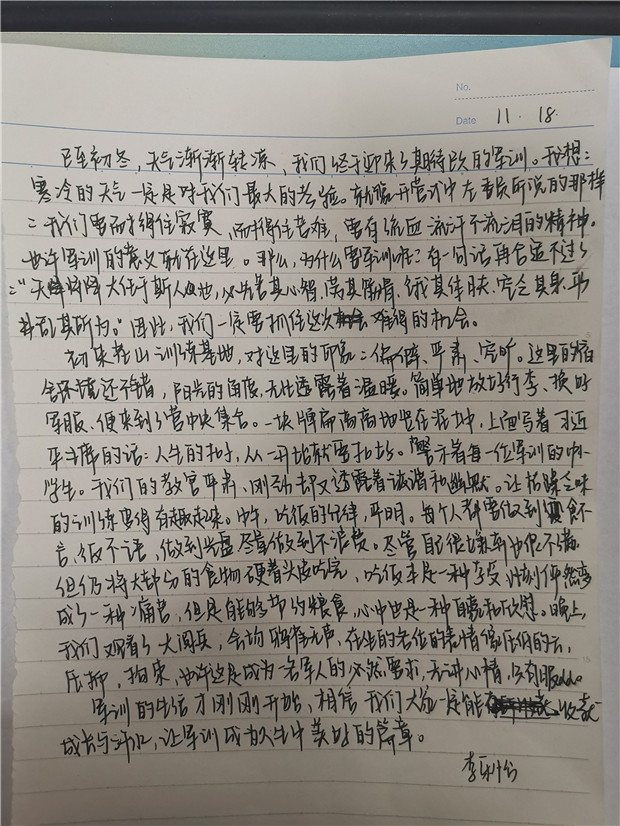 No.
Date 11. 18.
已至初冬，天气渐渐转凉，我们终于迎来了期待已久的军训。我想：
寒冷的天气一定是对我们最大的考验。就像开营式中左委员所说的那样
：我们要耐得住寂寞，耐得住苦难，要有流血流汗不流泪的精神。
也许军训的意义就在这里。那么，为什么要军训呢？有一句话再合适不过了
：“天将降大任于斯人也，必先苦其心智，劳其筋骨，饿其体肤，空乏其身，行
拂乱其所为。”因此，我们一定要抓住这次难得的机会。
初来 山训练基地，对这里的印象：偏僻、严肃、宽旷。这里的宿
舍环境还不错，阳光的角度，无比透露着温暖。简单地放好行李、换好
军服、便来到了营中央集合。一块牌匾高高地竖在 ，上面写着习近
平主席的话：人生的扣子，从一开始就要扣好。警示着每一位军训的中
学生。我们的教官严肃、刚劲却又透露着诙谐和幽默。让枯燥乏味
的训练变得有趣起来。中午，吃饭的纪律，严明。每个人都要做到寝食不
言，饭不语，做到光盘尽量做到不浪费。尽管自己很 也很不满
但仍将大部分的食物硬着头皮吃完，吃饭本是一种享受 时刻俨然变
成了一种痛苦，但是能够节约粮食，心中也是一种自豪和欣慰。晚上，
我们观看了大阅兵，会场鸦雀无声，在坐的各位的表情像压低的云，
压抑，拘束，也许这是成为一名军人的必然要求，无讲心情，只有服从。
军训的生活才刚刚开始，相信我们大家一定能 收获
成长与 ，让军训成为人生中美好的篇章。
李